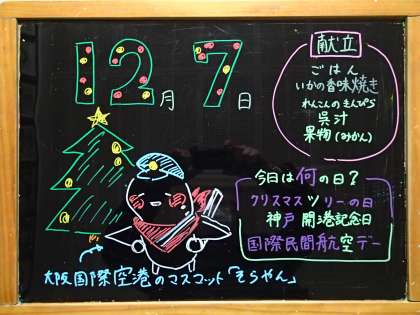 12月7日
献立
ごはん
いかの香味焼き
れんこんのきんぴら
呉汁
果物(みかん)
今日は何の日?
クリスマスツリーの日
神戸開港記念日
国際民間航空デー
大阪国際空港のマスコット「そらやん」